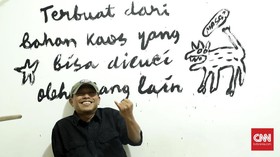 Terbuat dari
Bahan Kaos yang
bisa dicuci
oleh orang lain
CNN
Indonesia